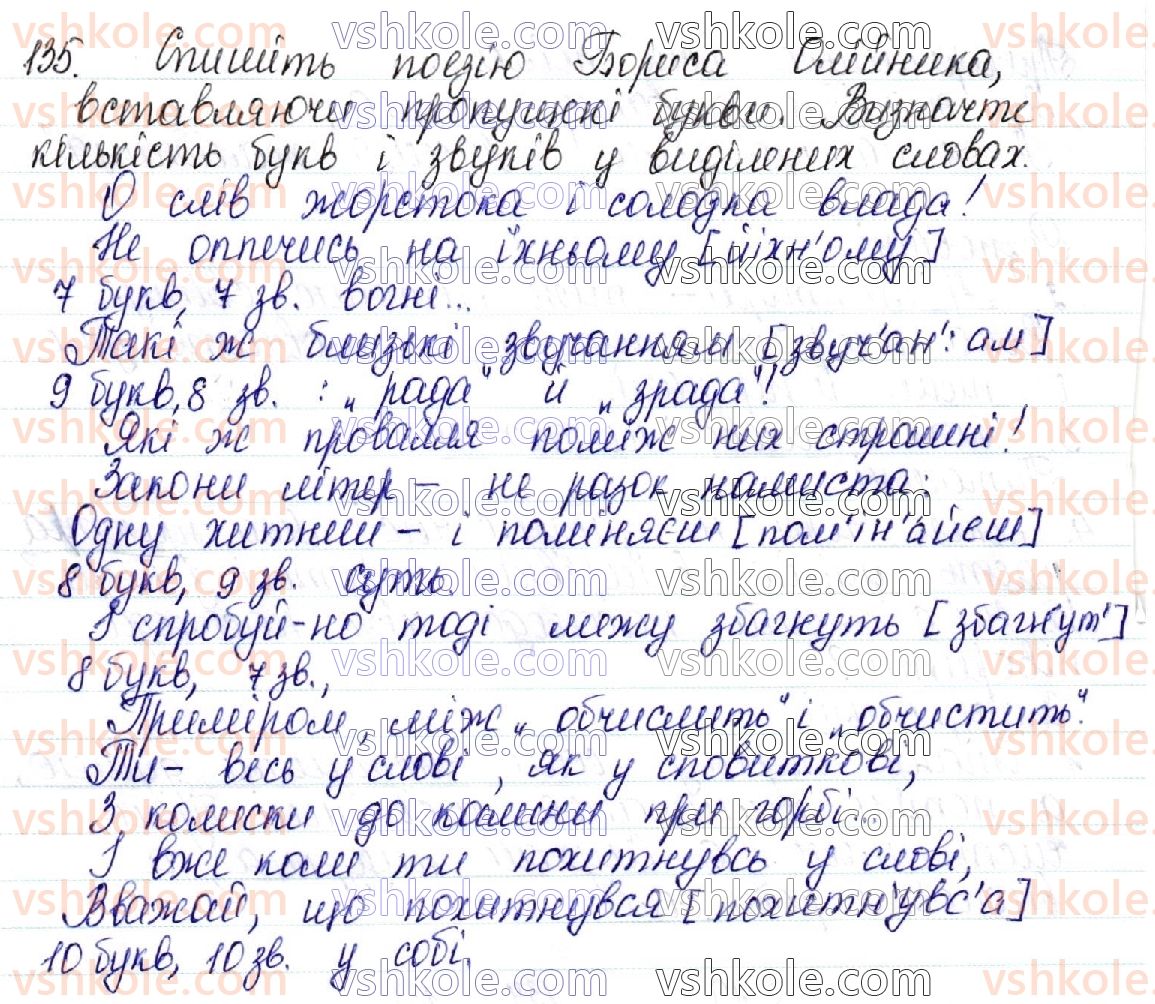 135. Спишіть поезію Бориса Олійника,
вставляючи пропущені букви. Визначте
кількість букв і звуків у виділених словах.
О слів жорстока і солодка влада!
Не оппечись на їхньому [йіхн'ому]
7 букв, 7 зв. вогні...
Такі ж близькі звучанням [звуч'ан':ам]
9 букв, 8 зв. : „рада" й „зрада"!
Які ж провалля поміж них страшні!
Закони літер – не разок намиста:
Одну хитнеш – і поміняєш [пом'ін'айеш]
8 букв, 9 зв. суть.
І спробуй-но тоді межу збагнуть [збагнут']
8 букв, 7 зв.,
Приміром, між „обчислить" і „обчистить".
Ти – весь у слові, як у сповиткові,
З колиски до калини при горбі...
І вже коли ти похитнувсь у слові,
Вважай, що похитнувся [похитнувс'а]
10 букв, 10 зв. у собі.